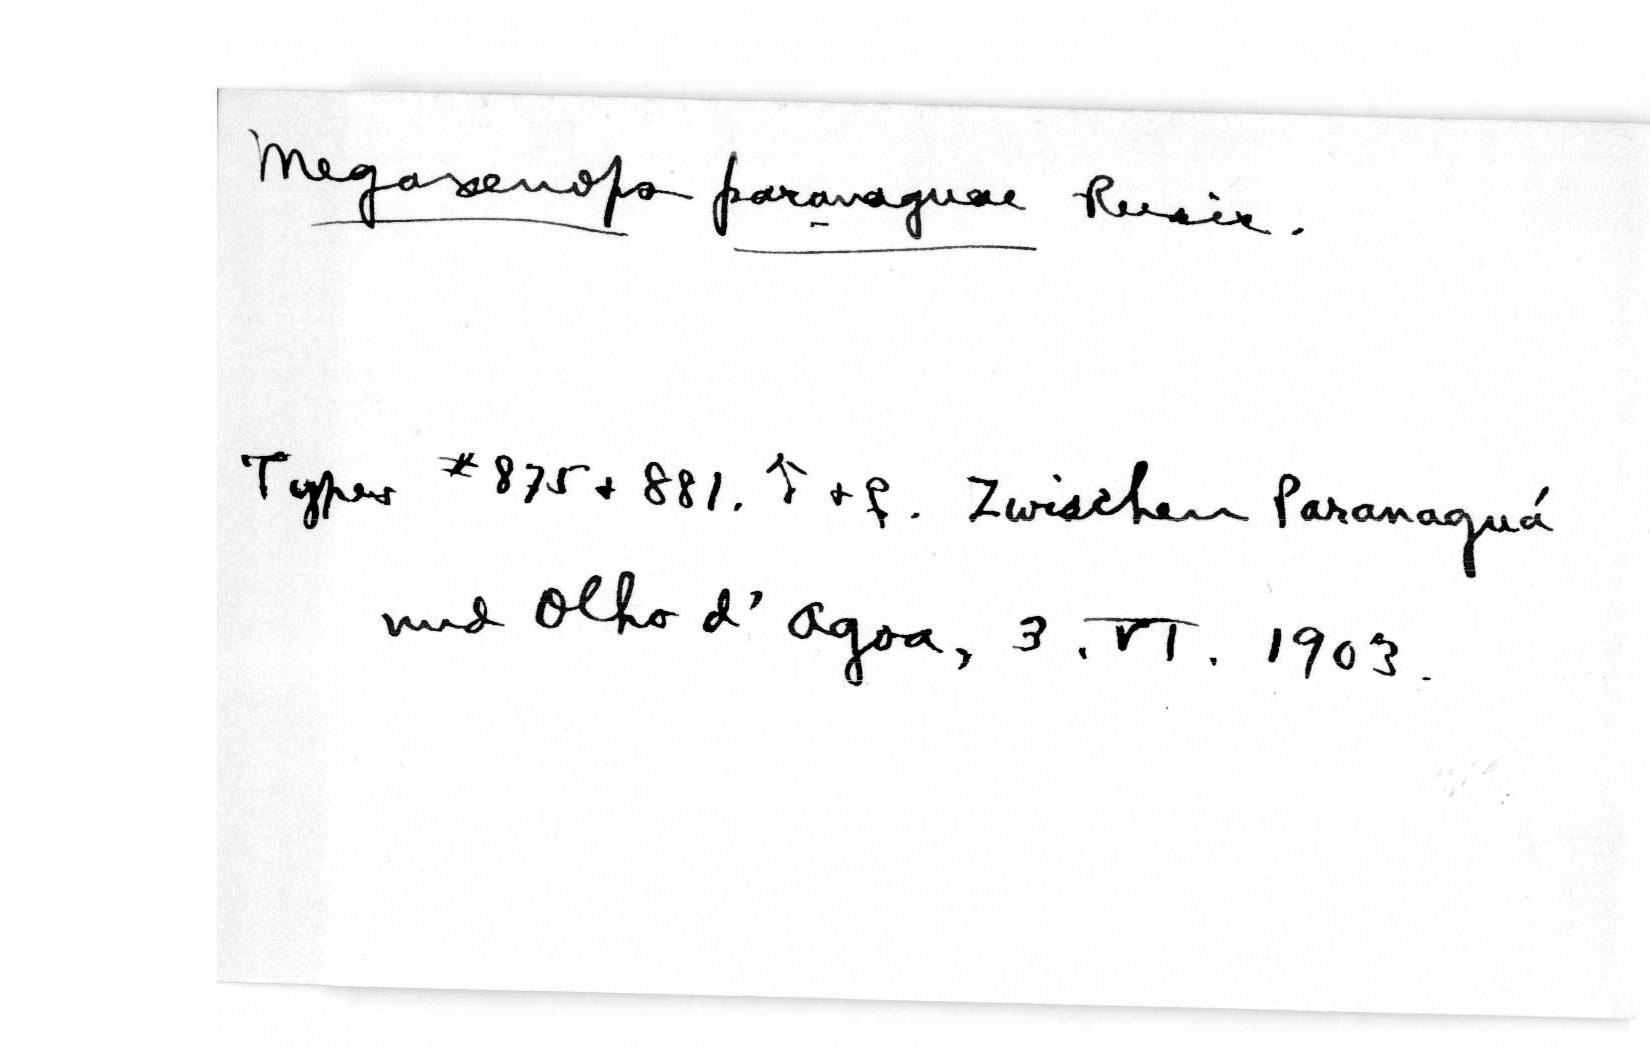 Megaxenops paranaguae Reiser.
Types #875 + 881. ♂ + ♀. Zwischen Paranaguá
und Olho d'Agoa, 3. VI. 1903.